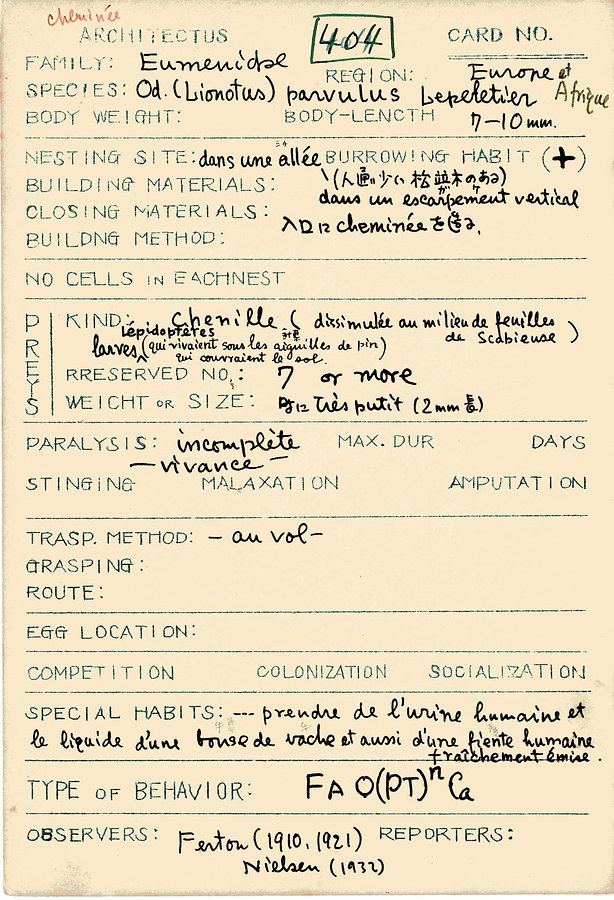 cheminée
ARCHITECTUS 404 CARD NO.
FAMILY: Eumenidae REGION: Europe et Afrique
SPECIES: Od. (Lionotus) parvulus Lepeletier
BODY WEIGHT: BODY-LENGTH 7-10 mm.
NESTING SITE: dans une allée BURROWING HABIT (+)
(人通り少い松並木のある)
BUILDING MATERIALS: dans un escarpement vertical
CLOSING MATERIALS: 入口に cheminée を
BUILDNG METHOD:
NO CELLS IN EACHNEST
PREYS
KIND: Chenille ( dissimulée au milieu de feuilles de Scabieuse )
Lépidoptères
larves (qui vivaient sous les aiguilles de pin)
qui couvraient le sol.
RRESERVED NO.: 7 or more
WEIGHT OR SIZE: très putit (2mm 長)
PARALYSIS: incomplète MAX. DUR DAYS
- vivance -
STINGING MALAXATION AMPUTATION
TRASP. METHOD: - au vol -
GRASPING:
ROUTE:
EGG LOCATION:
COMPETITION COLONIZATION SOCIALIZATION
SPECIAL HABITS: --- prendre de l'urine humaine et
le liquide d'une bouse de vache et aussi d'une fiente humaine
fraîchement émise.
TYPE OF BEHAVIOR: FA O(PT)ⁿ Ca
OBSERVERS: Ferton (1910, 1921) REPORTERS:
Nielsen (1932)